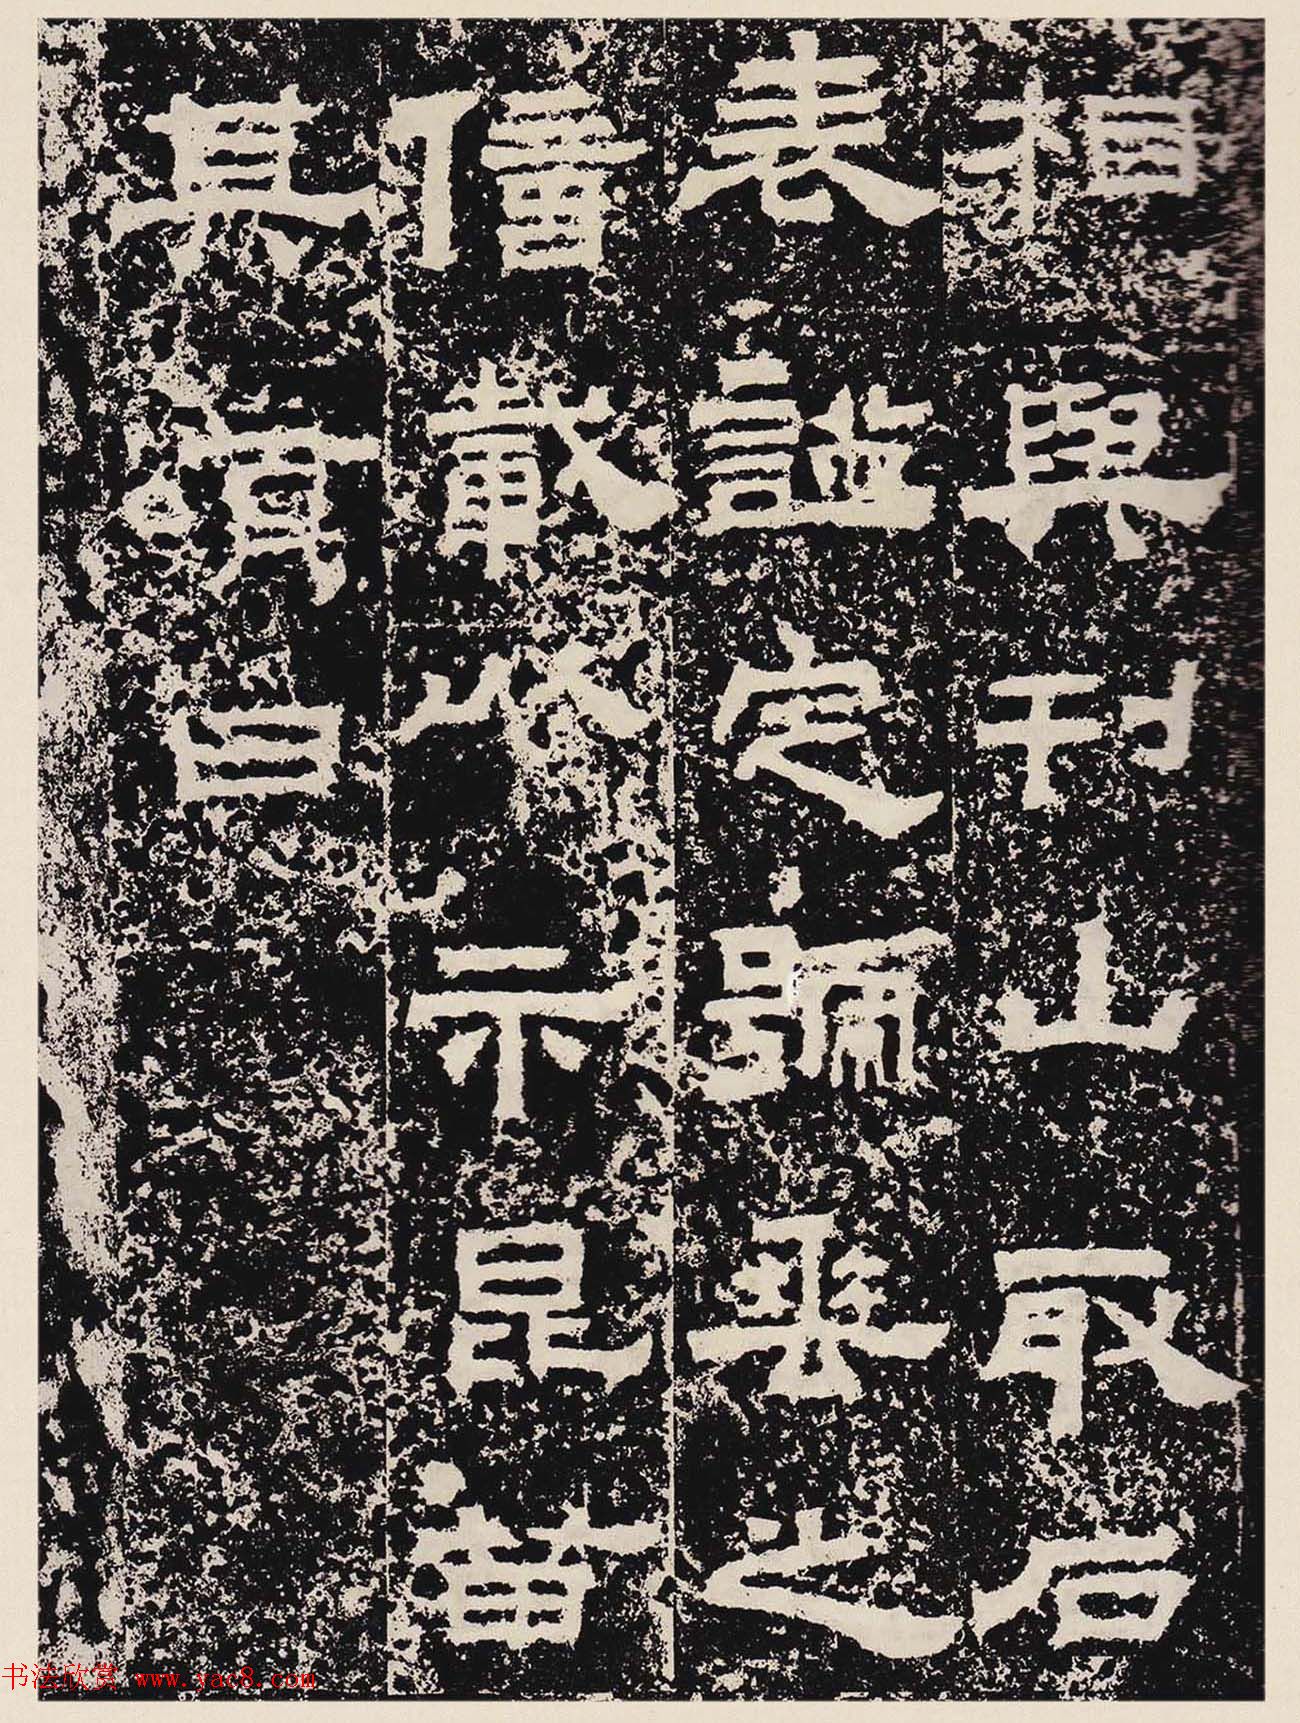 相與刊山取石
表謚定號垂之
億載以示昆苗
其曰
书法欣赏 www.yac8.com